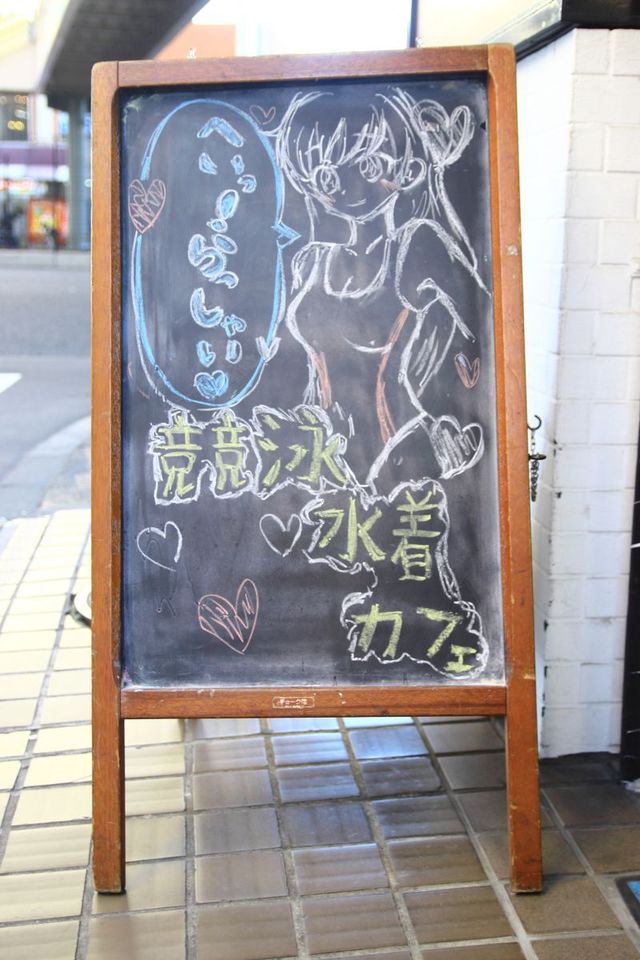 へいらっしゃい
競泳
水着
カフェ